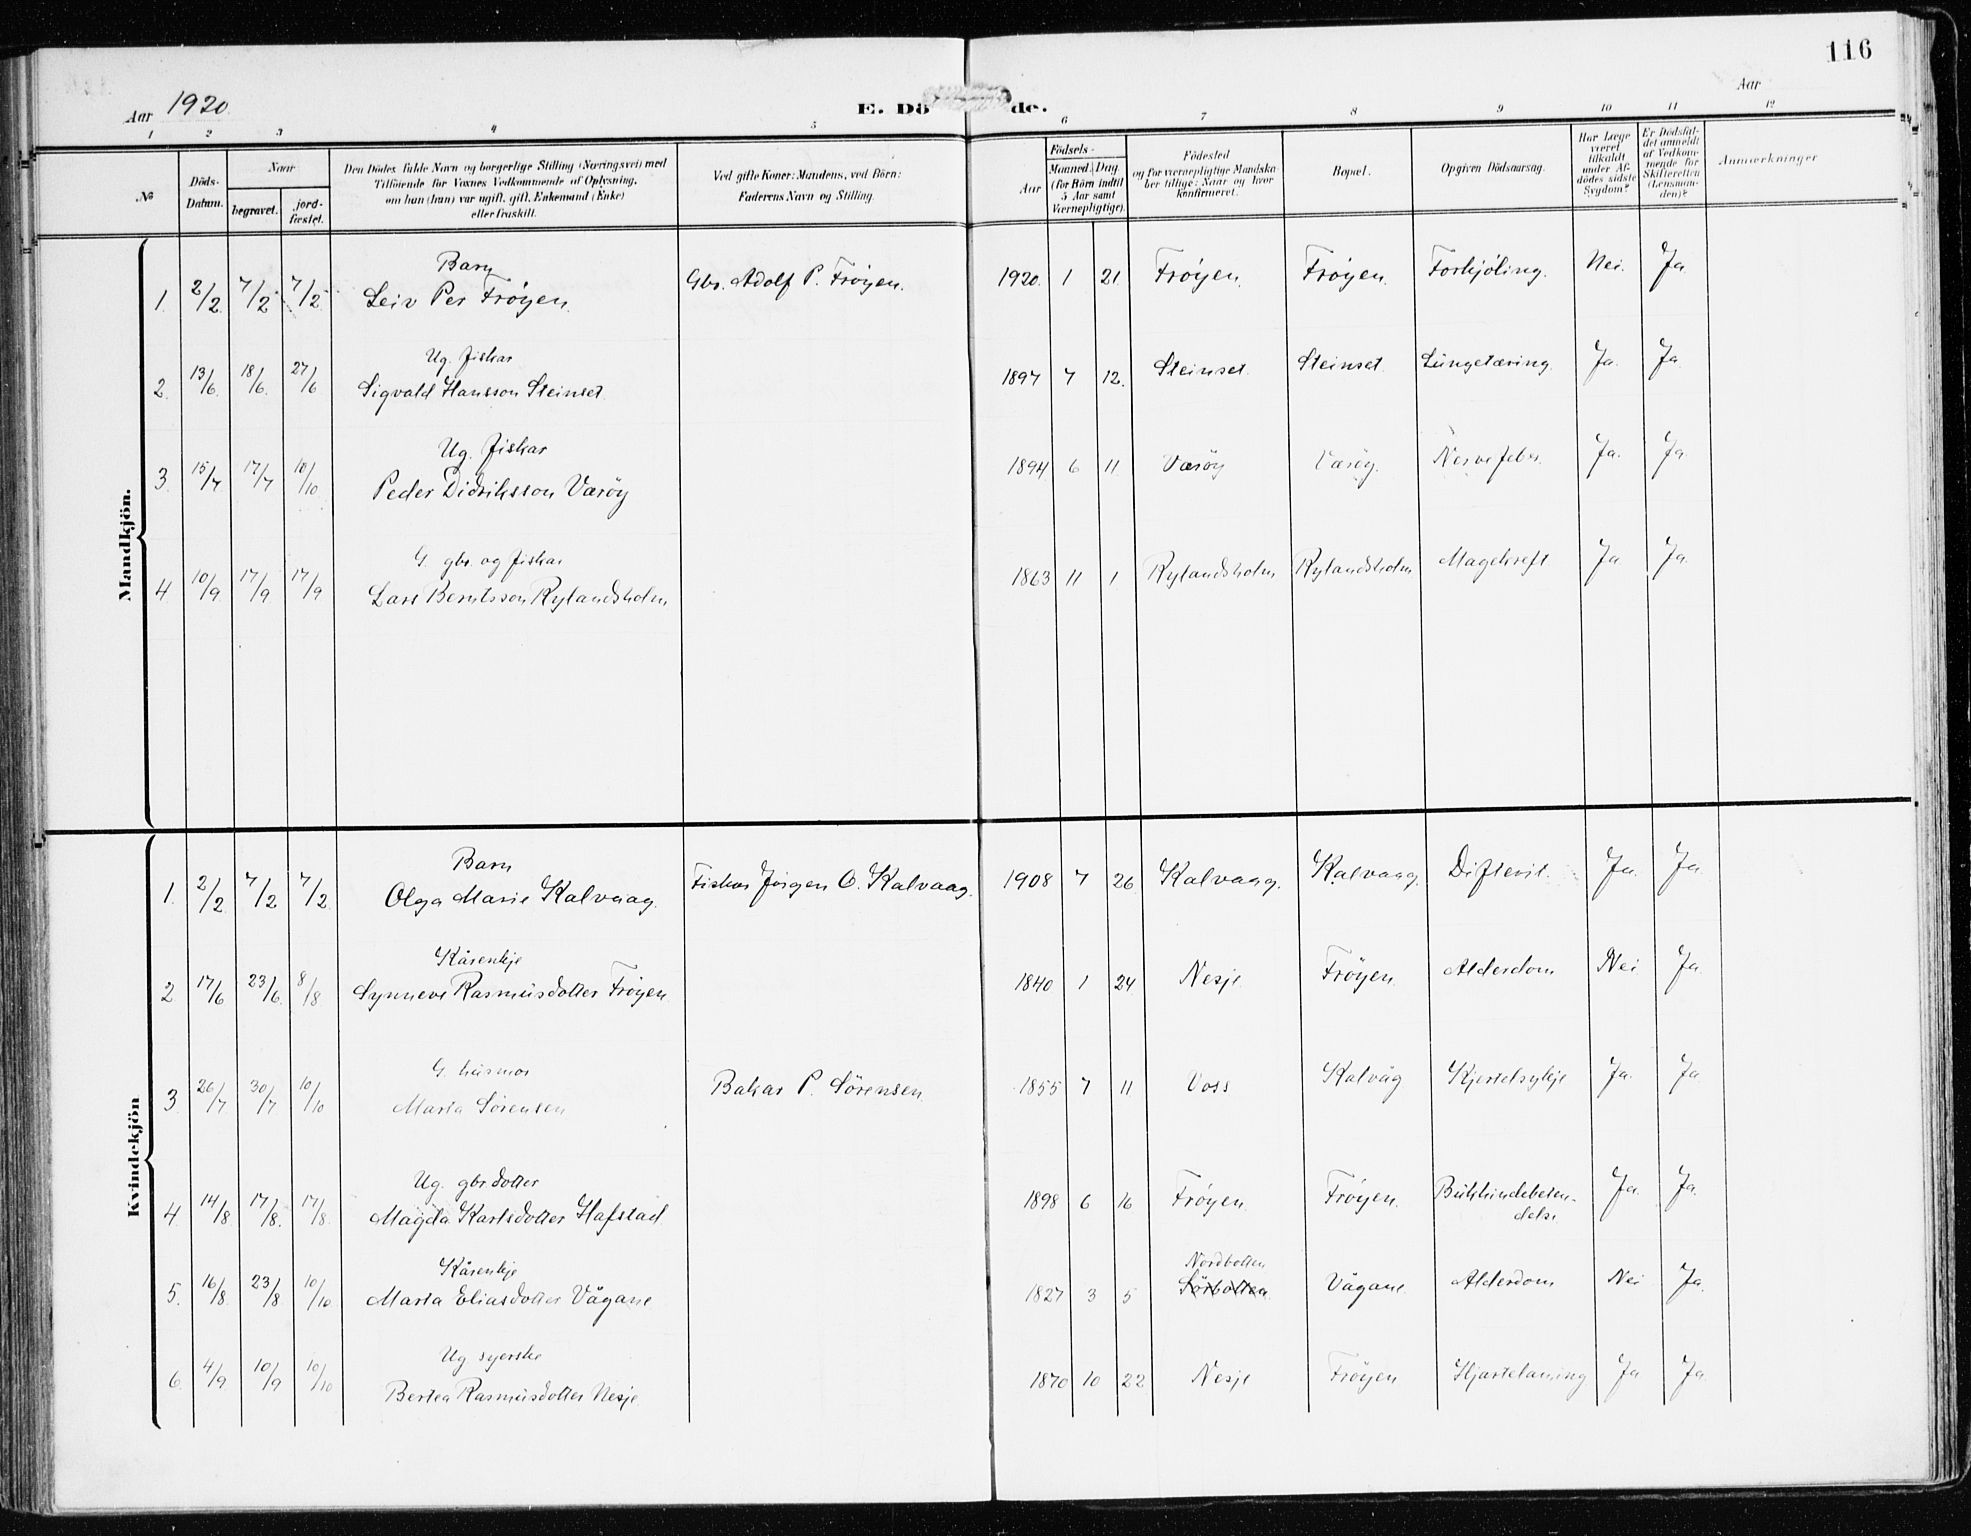 116
Aar 1920. E. Dö de. Aar
1 2 3 4 5 6 7 8 9 10 11 12
No
Döds-Datum.
Naar
begravet. jord-fæstet.
Den Dödes fulde Navn og borgerlige Stilling (Næringsvei) med
Tilföiende for Voxnes Vedkommende af Oplysning,
om han (hun) var ugift, gift, Enkemand (Enke)
eller fraskilt.
Ved gifte Koner: Mandens, ved Börn:
Faderens Navn og Stilling.
Födsels-
Aar Maaned. Dag.
(for Börn indtil
5 Aar samt
Værnepligtige).
Födested
og for værnepligtige Mandska-
ber tillige: Naar og hvor
konfirmeret.
Bopæl.
Opgiven Dödsaarsag.
Har Læge
været
tilkaldt
under Af-
dödes sidste
Sygdom?
Er Dödsfal-
det anmeldt
af Vedkom-
mende for
Skifteretten
(Lensman-
den)?
Anmærkninger
Mandkjön.
Barn
1. 2/2. 7/2 7/2 Leiv Per Fröyen. Gbr. Adolf P. Fröyen. 1920. 1 21. Fröyen. Fröyen. Forkjöling. Nei. Ja
Ug. fiskar
2. 13/6. 18/6. 27/6 Sigvald Hansson Steinset. 1897 7 12. Steinset. Steinset. Lungetæring. Ja. Ja.
Ug. fiskar
3. 15/7 17/7 10/10 Peder Didriksson Væröy 1894 6 11 Væröy Væröy. Nervefeber. Ja. Ja
G. gbr. og fiskar
4. 10/9. 17/9. 17/9 Lars Berntsson Rylandsholm 1863 11 1 Rylandsholm Rylandsholm Magekreft Ja Ja.
Kvindekjön
Barn
1. 2/2. 7/2 7/2. Olga Marie Kalvaag. Fiskar Jörgen O. Kalvaag. 1908 7 26 Kalvaag. Kalvaag. Difterit. Ja. Ja.
Kårenkje
2 17/6 23/6. 8/8 Synneve Rasmusdotter Fröyen 1840 1 24. Nesje Fröyen. Alderdom Nei Ja.
G. husmor
3 26/7 30/7 10/10 Marta Sörensen Bakar P. Sörensen. 1855 7 11 Voss Kalvåg Kjertelsykje Ja. Ja.
Ug. gbrdotter
4 14/8 17/8. 17/8. Magda Karlsdotter Hafstad 1898 6 16 Fröyen. Fröyen. Bukhindebeten- Ja. Ja.
delse
Kårenkje Nordbotten
5. 16/8. 23/8 10/10 Marta Eliasdotter Vågane 1827 3 5 Sörbotten Vågane. Alderdom Nei Ja.
Ug syerske
6. 4/9. 10/9 10/10 Bertea Rasmusdotter Nesje. 1870 10 22 Nesje Fröyen Hjartelaming Ja Ja.